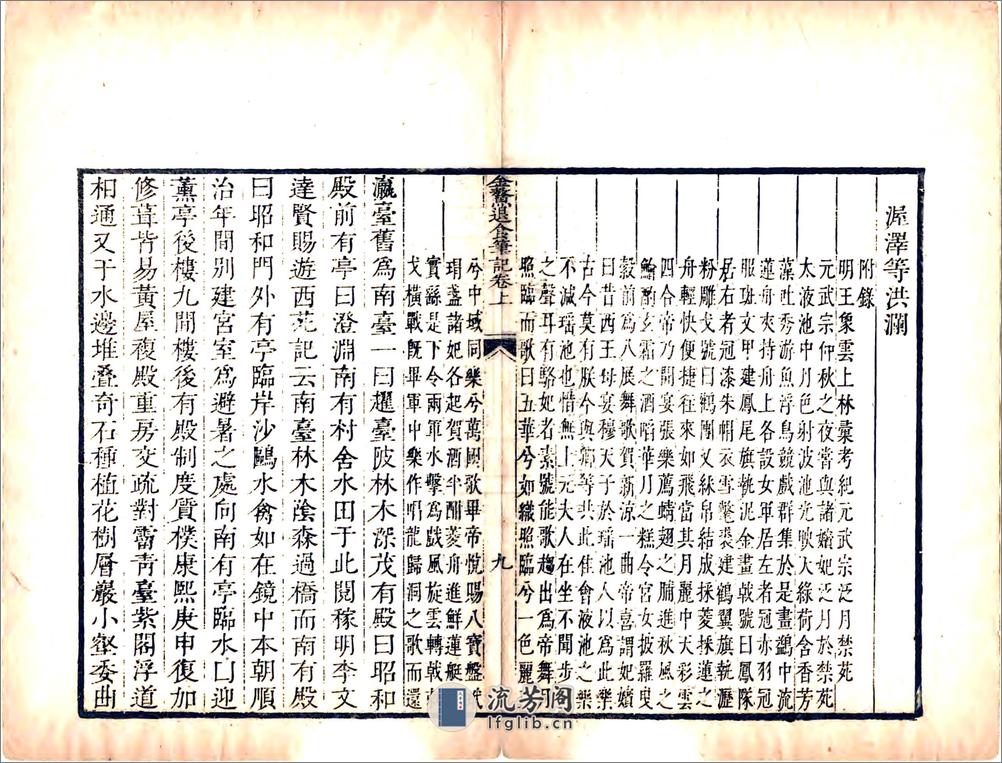 渥澤等洪瀾
附錄
明王象雲上林彙考紀元武宗泛月禁苑
元武宗仲秋之夜嘗與諸嬪妃泛月於禁苑
太液池中月色射波池光映天綠荷含香芳
藻吐秀游魚浮鳥競戲群集於是畫鷁中流
蓮舟夾持舟上各設女軍居左者冠赤羽冠
服斑文甲建鳳尾旗執泥金畫戟號曰鳳隊
居右者冠漆朱帽衣雪氅裘建鶴翼旗執瀝
粉雕戈號曰鶴團又綵帛結成採菱採蓮之
舟輕快便捷往來如飛當其月麗中天彩雲
四合帝乃開宴張樂薦蜻翅之脯進秋風之
鱠酌玄霜之酒啗華月之糕令宮女披羅曳
縠前為八展舞歌賀新涼一曲帝喜謂妃嬪
曰昔西王母宴穆天子於瑤池人以為此樂
古今莫有朕今與卿等共此佳會液池之樂
不減瑤池也惜無上元夫人在坐不聞步
之聲耳有駱妃者素號能歌趨出為帝舞月
照臨而歌曰五華兮如織照臨兮一色麗
金鰲退食筆記卷上
九
兮中域同樂兮萬國歌畢帝悅賜八寶盤玳
瑁盞諸妃各起賀酒半酣菱舟進鮮蓮艇
實繇是下令兩軍水擊為戲風旋雲轉戟
戈橫戰既畢軍中樂作唱龍歸洞之歌而還
瀛臺舊為南臺一曰趯臺陂林木深茂有殿曰昭和
殿前有亭曰澄淵南有村舍水田于此閱稼明李文
達賢賜遊西苑記云南臺林木陰森過橋而南有殿
曰昭和門外有亭臨岸沙鷗水禽如在鏡中本朝順
治年間別建宮室為避暑之處向南有亭臨水曰迎
薰亭後樓九間樓後有殿制度質樸康熙庚申復加
修葺皆易黃屋複殿重房交疏對霤青臺紫閣浮道
相通又于水邊堆叠奇石種植花樹層巖小壑委曲
流芳阁
lfglib.cn